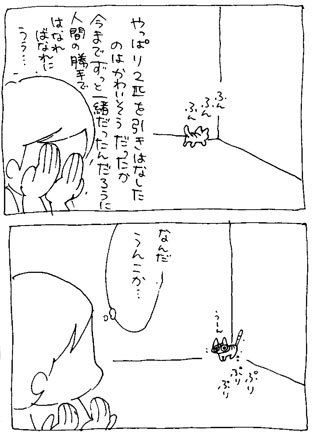 やっぱり2匹を引きはなした
のはかわいそうだったか
今までずっと一緒だったんだろうに
人間の勝手で
はなれ
ばなれに
うぅ…
ふん
ふん
ふん
なんだ〜
うんこか…
うーん
ぷり
ぷり
ぷり